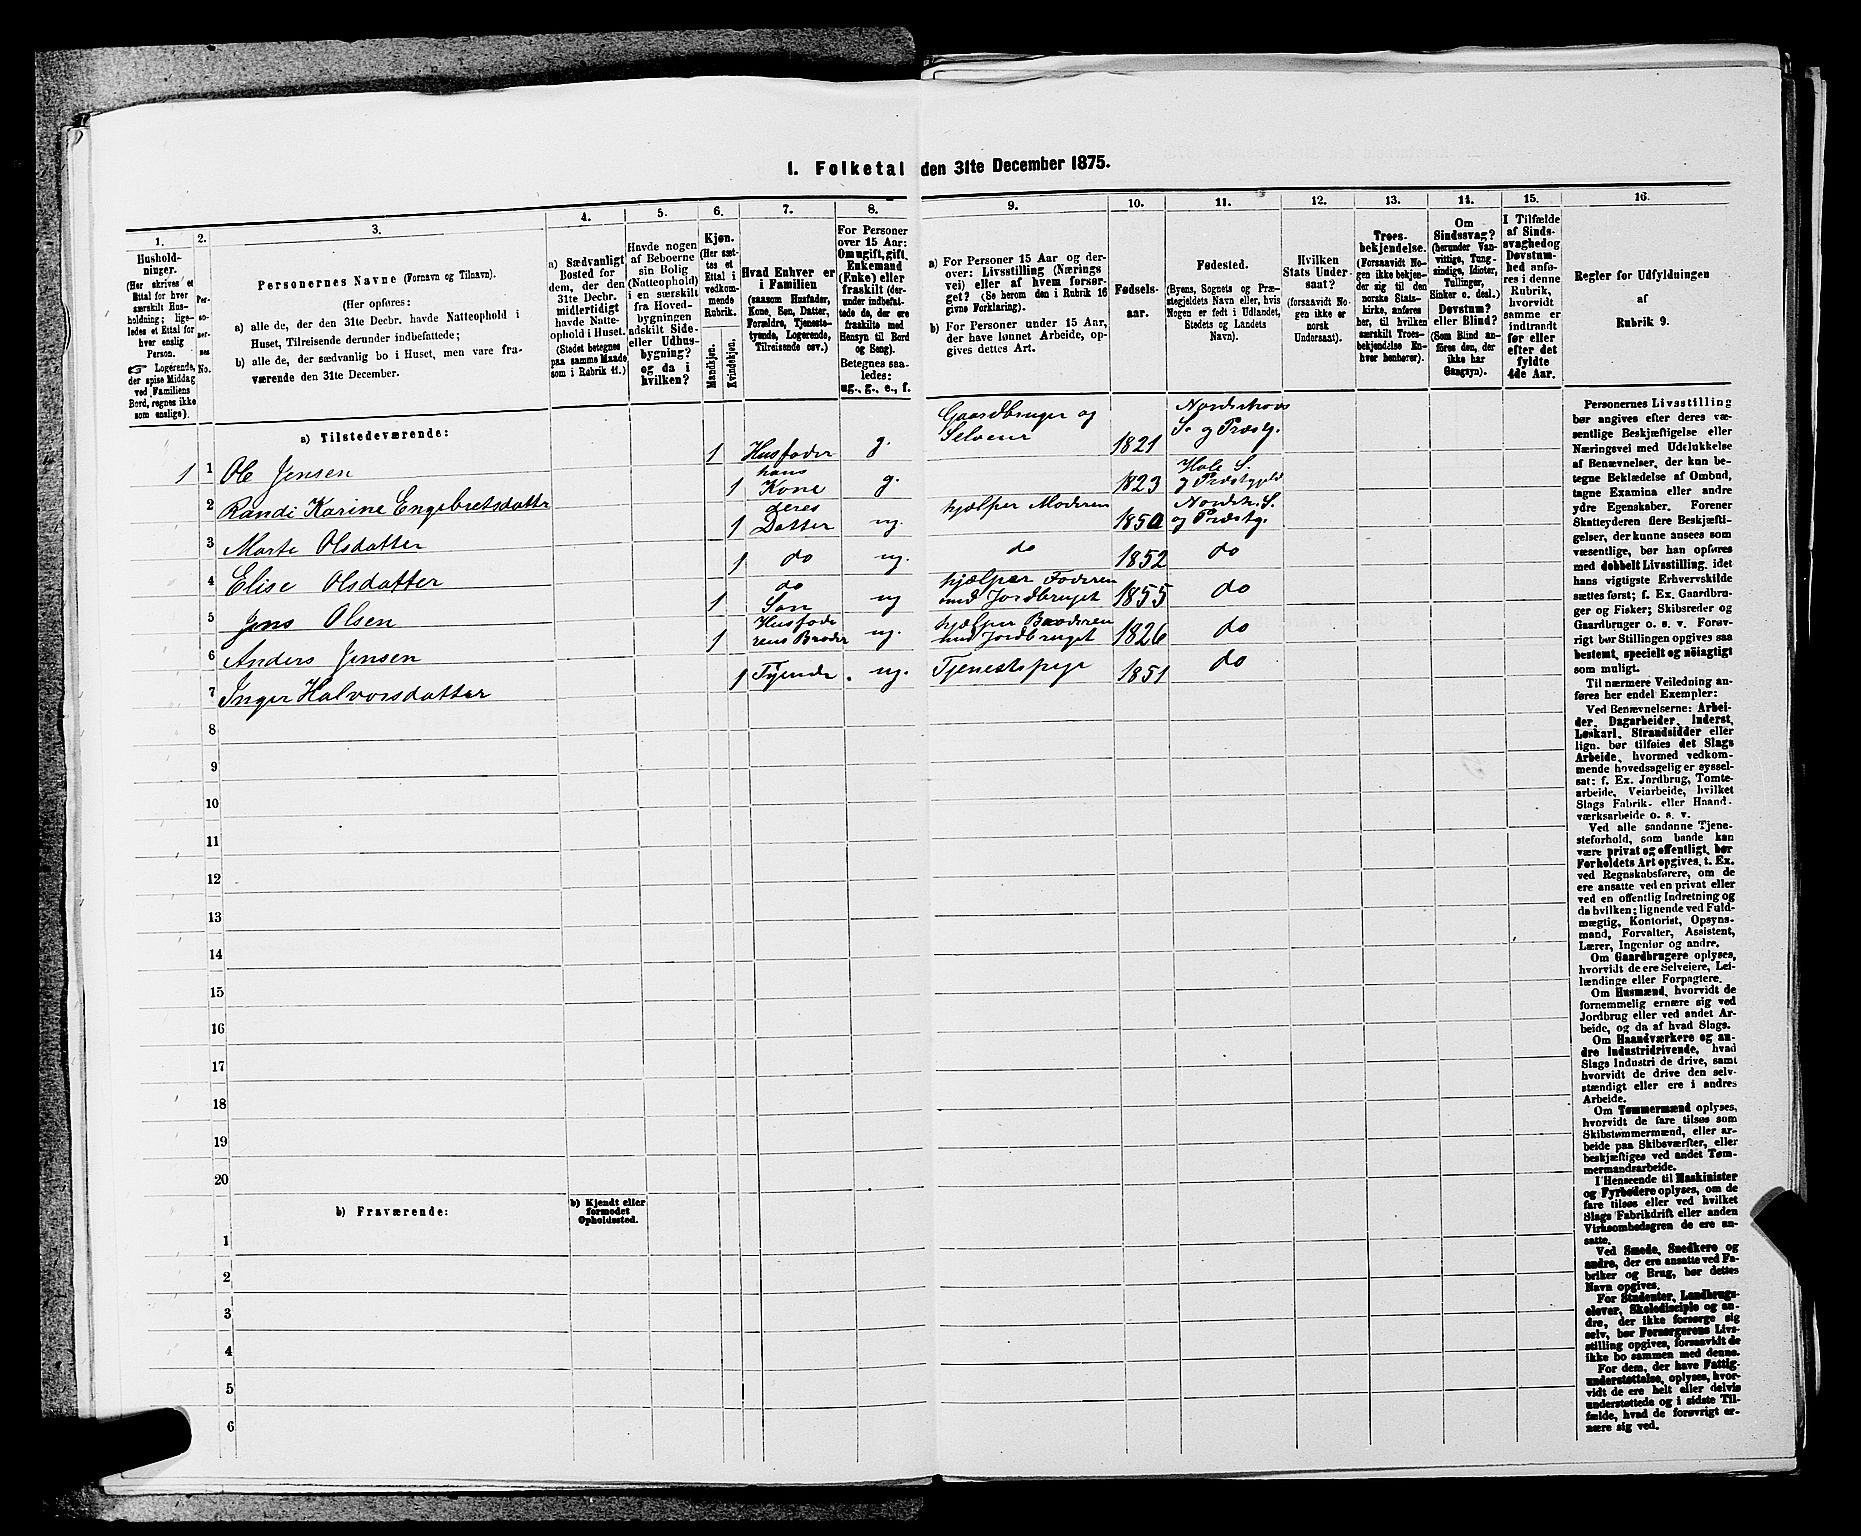 I. Folketal den 31te December 1875.
1.
Husholdninger.
(Her skrives et
Ettal for hver
særskilt Husholdning;
ligeledes et Ettal for
hver enslig
Person.
Logerende,
der spise Middag
ved Familiens
Bord, regnes ikke
som enslige).
2.
Personernes
No.
3.
Personernes Navne (Fornavn og Tilnavn).
(Her opføres:
a) alle de, der den 31te Decbr. havde Natteophold i
Huset, Tilreisende derunder indbefattede;
b) alle de, der sædvanlig bo i Huset, men vare fraværende
den 31te December.
4.
a) Sædvanligt
Bosted for
dem, der den
31te Decbr.
midlertidigt
havde Natteophold
i Huset.
(Stedet betegnes
paa samme Maade
som i Rubrik 11.)
5.
Havde nogen
af Beboerne
sin Bolig
(Natteophold)
i en særskilt
fra Hovedbygningen
adskilt Side-
eller Udhusbygning?
og da i
hvilken?
6.
Kjøn.
(Her sættes et
Ettal i
vedkommende
Rubrik.
Mandkjøn.
Kvindekjøn.
7.
Hvad Enhver er
i Familien
(saasom Husfader,
Kone, Søn, Datter,
Forældre, Tjenestetyende,
Logerende,
Tilreisende osv.)
8.
For Personer
over 15 Aar:
Om ugift, gift,
Enkemand
(Enke) eller
fraskilt (derunder
indbefattede de, der ere
fraskilte med
Hensyn til Bord
og Seng).
Betegnes saaledes:
ug., g., e., f.
9.
a) For Personer 15 Aar og derover:
Livsstilling (Næringsvei)
eller af hvem forsørget?
(Se herom den i Rubrik 16
givne Forklaring).
b) For Personer under 15 Aar,
der have lønnet Arbeide, opgives
dettes Art.
10.
Fødselsaar.
11.
Fødested.
(Byens, Sognets og Præstegjeldets
Navn eller, hvis
Nogen er født i Udlandet,
Stedets og Landets
Navn).
12.
Hvilken
Stats Undersaat?
(forsaavidt Nogen
ikke er
norsk
Undersaat).
13.
Troesbekjendelse.
(Forsaavidt Nogen
ikke bekjender
sig til den
norske Statskirke,
anføres
her, til hvilken
særskilt Troesbekjendelse
Enhver henhører).
14.
Om
Sindssvag?
(herunder Vanvittige,
Tungsindige,
Idioter,
Tullinger,
Sinker o. desl.)
Døvstum?
eller Blind?
(Som Blind anføres
den, der
ikke har
Gangsyn).
15.
I Tilfælde
af Sindssvaghed
og
Døvstumhed
anføres
i denne
Rubrik,
hvorvidt
samme er
indtraadt
før eller
efter det
fyldte
4de Aar.
16.
Regler for Udfyldningen
af
Rubrik 9.
a) Tilstedeværende:
1 1 Ole Jensen 1 Husfader g. Gaardbruger og Selveier 1821 Nordrehovs S. og Præstg.
2 Randi Karine Engebretsdatter 1 hans Kone g. 1823 Hole S. og Præstegjeld
3 Marte Olsdatter 1 deres Datter ug. hjælper Moderen 1850 Nordr. S. og Præstg.
4 Elise Olsdatter 1 do ug. do 1852 do
5 Jens Olsen 1 do Søn ug hjælper Faderen med Jordbruget 1855 do
6 Anders Jensen 1 Husfaderens Broder ug. hjælper Broderen med Jordbruget 1826 do
7 Inger Halvorsdatter 1 Tyende ug. Tjenestepige 1851 do
8
9
10
11
12
13
14
15
16
17
18
19
20
b) Fraværende:
b) Kjendt eller
formodet
Opholdssted.
1
2
3
4
5
6
Personernes Livsstilling
bør angives efter deres væsentlige
Beskjæftigelse eller
Næringsvei med Udelukkelse
af Benævnelser, der kun betegne
Beklædelse af Ombud,
tagne Examina eller andre
ydre Egenskaber. Forener
Skatteyderen flere Beskjæftigelser,
der kunne ansees som
væsentlige, bør han opføres
med dobbelt Livsstilling, idet
hans vigtigste Erhvervskilde
sættes først; f. Ex. Gaardbruger
og Fisker; Skibsreder og
Gaardbruger o. s. v. Forøvrigt
bør Stillingen opgives saa
bestemt, specielt og nöiagtigt
som muligt.
Til nærmere Veiledning anføres
her endel Exempler:
Ved Benævnelserne: Arbeider,
Dagarbeider, Inderst,
Løskarl, Strandsidder eller
lign. bør tilføies det Slags
Arbeide, hvormed vedkommende
hovedsagelig er sysselsat;
f. Ex. Jordbrug, Tomtearbeide,
Veiarbeide, hvilket
Slags Fabrik- eller Haandværksarbeide
o. s. v.
Ved alle saadanne Tjenesteforhold,
som baade kan
være privat og offentligt, bør
Forholdets Art opgives, t. Ex.
ved Regnskabsførere, om de
ere ansatte ved en privat eller
ved en offentlig Indretning og
da hvilken; lignende ved Fuldmægtig,
Kontorist, Opsynsmand,
Forvalter, Assistent,
Lærer, Ingeniør og andre.
Om Gaardbrugere oplyses,
hvorvidt de ere Selveiere, Leilændinge
eller Forpagtere.
Om Husmænd, hvorvidt de
fornemmelig ernære sig ved
Jordbrug eller ved andet Arbeide,
og da af hvad Slags.
Om Haandværkere og andre
Industridrivende, hvad
Slags Industri de drive, samt
hvorvidt de drive den selvstændigt
eller ere i andres
Arbeide.
Om Tømmermænd oplyses,
hvorvidt de fare tilsøs som
Skibstømmermænd, eller arbeide
paa Skibsværfter, eller
beskjæftiges ved andet Tømmermandsarbeide.
I Henseende til Maskinister
og Fyrbødere oplyses, om de
fare tilsøs eller ved hvilket
Slags Fabrikdrift eller anden
Virksomhedsgren de ere ansatte.
Ved Smede, Snedkere og
andre, der ere ansatte ved Fabriker
og Brug, bør dettes
Navn opgives.
For Studenter, Landbrugselever,
Skoledisciple og andre,
der ikke forsørge sig
selv, bør Forsørgerens Livsstilling
opgives, forsaavidt de
ikke bo sammen med denne.
For dem, der have Fattigunderstøttelse,
oplyses, hvorvidt
de ere helt eller delvis
understøttede og i sidste Tilfælde,
hvad de forøvrigt ernære
sig ved.